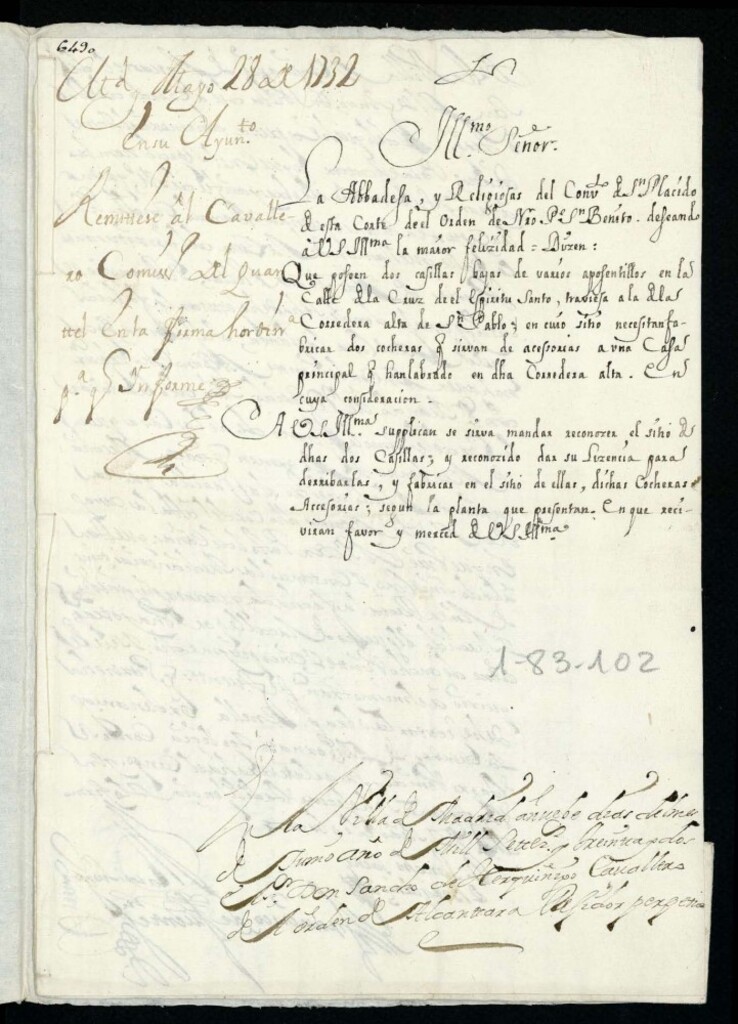 6490
Md Mayo 28 de 1732
En su Ayunto
Remitese al Cavalle-
ro Comisso del Quar
tel en la forma hordinra
pa qe Informe
Illmo Señor.
La Abbadesa, y Religiosas del Convto de Sn Placido
de esta Corte de el Orden de Nro Pe Sn Benito. deseando
a VS Illma la maior felizidad = Dizen:
Que poseen dos casillas bajas de varios aposentillos en la
Calle de la Cruz de el Espiritu Santo, traviesa a la de la
Corredera alta de Sn Pablo; en cuio sitio necesitan fa-
bricar dos cocheras q sirvan de acesorias a vna Casa
principal q han labrado en dha Corredera alta. En
cuya consideracion.
A VS Illma supplican se sirva mandar reconozer el sitio de
dhas dos Casillas; y reconozido dar su Lizencia para
derribarlas, y fabricar en el sitio de ellas, dichas Cocheras
Accesorias; segun la planta que presentan. En que reci-
viran favor y merced de VS Illma
1-83-102
En la Villa de Madrid a nuebe dias del mes
de Junio año de Mill Settez y treinta y dos
el Sr Don Sancho de Cavallero
de el orden de Alcantara Rexidor perpetuo